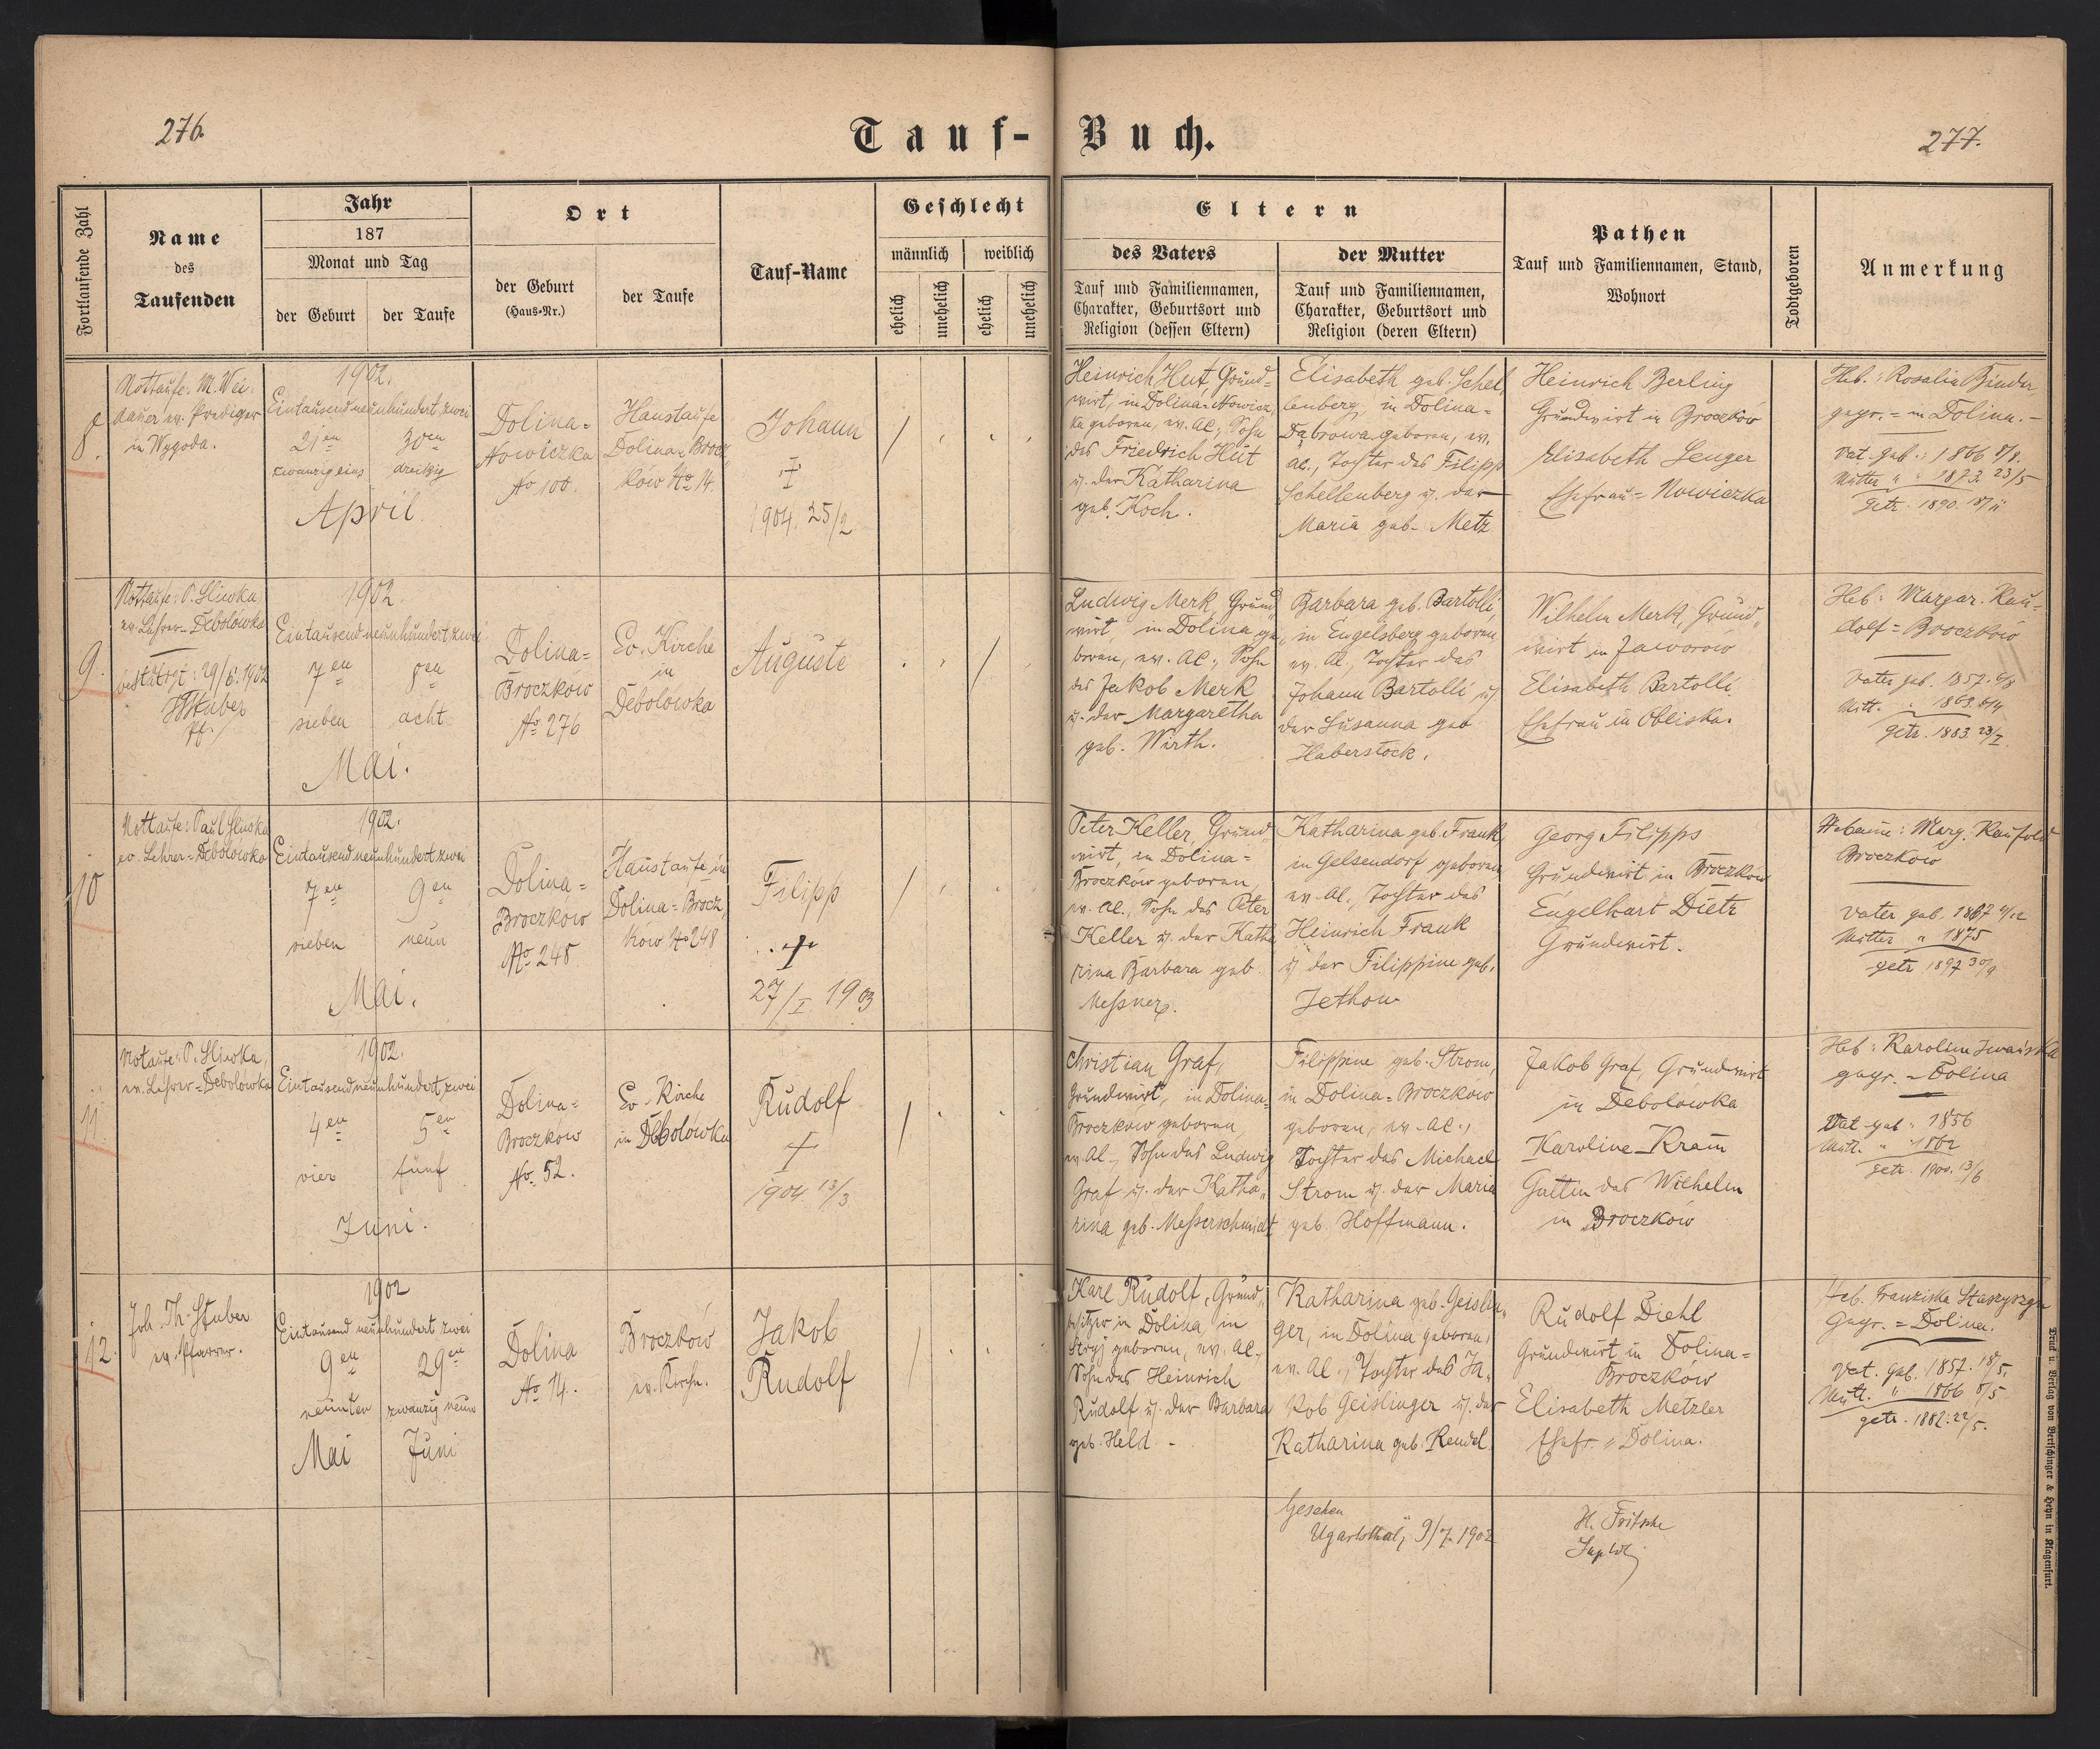 276.
Tauf-Buch.
277.
Fortlaufende Zahl
Name
des
Taufenden
Jahr
187
Monat und Tag
der Geburt
der Taufe
Ort
der Geburt
(Haus-Nr.)
der Taufe
Tauf-Name
Geschlecht
männlich
weiblich
ehelich
unehelich
ehelich
unehelich
Eltern
des Vaters
Tauf und Familiennamen,
Charakter, Geburtsort und
Religion (dessen Eltern)
der Mutter
Tauf und Familiennamen,
Charakter, Geburtsort und
Religion (deren Eltern)
Pathen
Tauf und Familiennamen, Stand,
Wohnort
Todtgeboren
Anmerkung
8.
Nottaufe: M. Wei-
dauer ev. Prediger
in Wygoda.
1902.
Eintausendneunhundert zwei
21en
zwanzig eins
30en
dreißig
April.
Dolina=
Nowiczka
No 100.
Haustaufe
Dolina=Brocz
ków No 14.
Johann
+
1904. 25/2
Heinrich Hut, Grund=
wirt, in Dolina-Nowicz
ka geboren, ev. AC., Sohn
des Friedrich Hut
u. der Katharina
geb. Koch.
Elisabeth geb. Schel
lenberg, in Dolina=
Dąbrowa geboren, ev.
AC., Tochter des Filipp
Schellenberg u. der
Maria geb. Metz
Heinrich Berling
Grundwirt in Broczków
Elisabeth Senger
Ehefrau = Nowiczka
Heb.: Rosalia Binder
gepr. = in Dolina.
Vat. geb.: 1866 8/8.
Mutter " " 1873 23/5
Getr. 1890. 18/11
9.
Nottaufe: P. Sliwka
ev. Lehrer-Debolówka
bestätigt: 29/6 1902
Stuber
Pf.
1902.
Eintausendneunhundert zwei
7en
sieben
8en
acht
Mai.
Dolina=
Broczków
No 276
Ev. Kirche
in
Debolowka
Auguste
Ludwig Merk, Grund
wirt, in Dolina ge
boren, ev. AC., Sohn
des Jakob Merk
u. der Margaretha
geb. Wirth.
Barbara geb. Bartolli,
in Engelsberg geboren
ev. AC., Tochter des
Johann Bartolli u.
der Susanna geb.
Haberstock.
Wilhelm Merk, Grund
wirt in Jaworów
Elisabeth Bartolli
Ehefrau in Obliska.
Heb: Margar. Rau-
dolf = Broczków
Vater geb. 1857. 6/8
Mutt. " 1863. 6/4
getr. 1883. 23/I.
10
Nottaufe: Paul Sliwka
ev. Lehrer=Debolowka
1902.
Eintausend neunhundert zwei
7en
sieben
9en
neun
Mai.
Dolina=
Broczków
No 248
Haustaufe in
Dolina=Brocz
ków No 248
Filipp
+
27/I 1903
Peter Keller, Grund
wirt, in Dolina=
Broczków geboren,
ev. AC., Sohn des Peter
Keller u. der Katha
rina Barbara geb.
Messner.
Katharina geb. Frank,
in Gelsendorf geboren
ev. AC., Tochter des
Heinrich Frank
u. der Filippine geb.
Jethon
Georg Filipps
Grundwirt in Broczków
Engelhart Dietz
Grundwirt.
Hebamme: Marg. Raufold
Broczkow
Vater geb. 1867
Mutter " 1875
getr 1897 30/9
11.
Notaufe: P. Sliwka,
ev. Lehrer=Debolówka
1902.
Eintausendneunhundert zwei
4en
vier
5en
fünf
Juni.
Dolina=
Broczkow
No. 52.
Ev. Kirche
in Debolówka
Rudolf
+
1904. 13/3
Christian Graf,
Grundwirt, in Dolina=
Broczków geboren,
ev. AC., Sohn des Ludwig
Graf u. der Katha,,
rina geb. Messerschmidt
Filippine geb. Strom,
in Dolina=Broczków
geboren, ev. AC.,
Tochter des Michael
Strom u. der Maria
geb. Hoffmann.
Jakob Graf, Grundwirt
in Debolowka
Karoline Kram̅
Gattin des Wilhelm
in Broczkow
Heb: Karoline Iwańska
gepr. = Dolina
Vat. geb. 1856
Mutt. " 1862
getr. 1900. 13/6
12.
Joh. Th. Stuber
ev. Pfarrer.
1902
Eintausend neunhundert zwei
9en
neunten
29en
zwanzig neun
Mai
Juni
Dolina
No 14.
Broczków
ev. Kirche.
Jakob
Rudolf
Karl Rudolf, Grund,,
besitzer in Dolina, in
Stryj geboren, ev. AC.
Sohn des Heinrich
Rudolf u. der Barbara
geb. Held.
Katharina geb. Geislin,,
ger, in Dolina geboren,
ev. AC., Tochter des Ja,,
kob Geislinger u. der
Katharina geb. Rendel.
Rudolf Diehl
Grundwirt in Dolina=
Broczków
Elisabeth Metzler
Ehefr. = Dolina.
Heb. Franziska
Gepr. = Dolina.
Vat. geb. 1857. 18/5.
Mutt. " 1866 8/5
getr. 1882. 22/5.
Gesehen
Ugartsthal, 9/7. 1902
H. Fritsche
Suptdt
Druck u. Verlag von Bertschinger & Heyn in Klagenfurt.